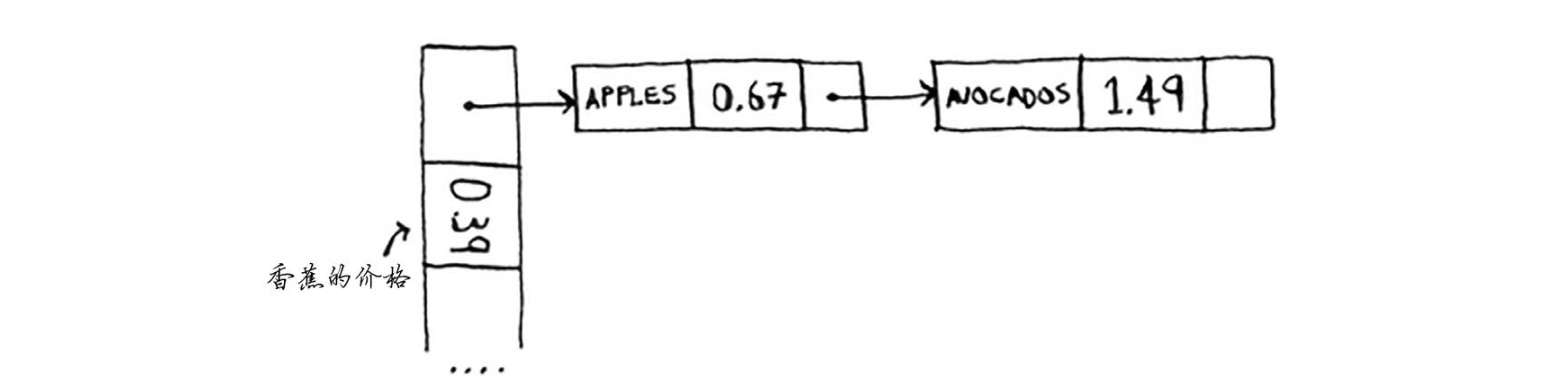 APPLES 0.67 AVOCADOS 1.49
0.39
香蕉的价格
....